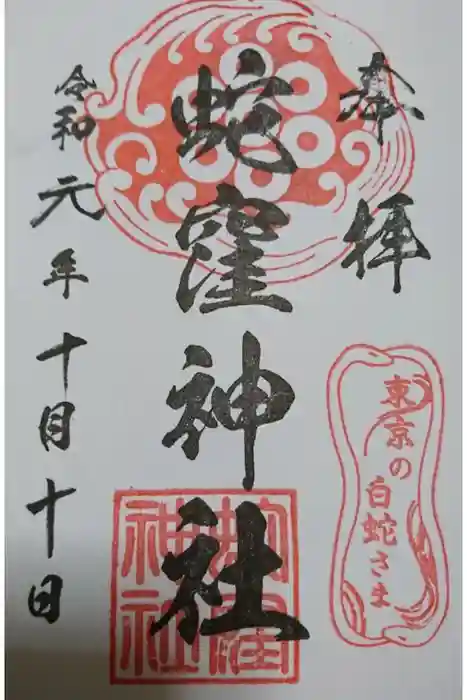 奉拝
東京の
白蛇さま
蛇窪神社
蛇窪
神社
令和元年十月十日